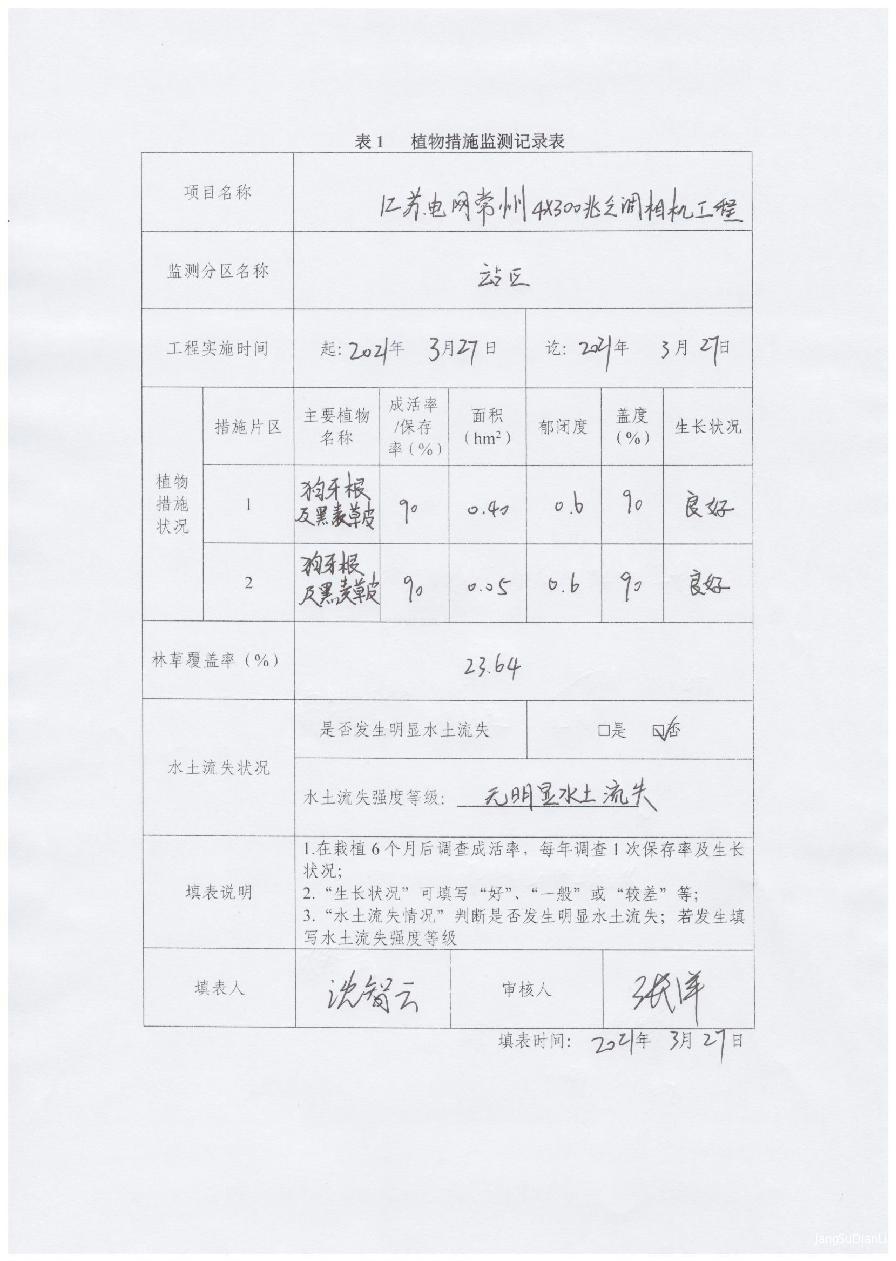 表1 植物措施监测记录表
项目名称
江苏电网常州4X300兆乏调相机工程
监测分区名称
站区
工程实施时间
起：2021年 3月27日
讫：2021年 3月27日
植物
措施
状况
措施片区
主要植物
名称
成活率
/保存
率（%）
面积
（hm²）
郁闭度
盖度
（%）
生长状况
1
狗牙根
及黑麦草皮
90
0.40
0.6
90
良好
2
狗牙根
及黑麦草皮
90
0.05
0.6
90
良好
林草覆盖率（%）
23.64
水土流失状况
是否发生明显水土流失
□是 ☑否
水土流失强度等级：无明显水土流失
填表说明
1.在栽植6个月后调查成活率，每年调查1次保存率及生长
状况；
2.“生长状况”可填写“好”、“一般”或“较差”等；
3.“水土流失情况”判断是否发生明显水土流失；若发生填
写水土流失强度等级
填表人
沈智云
审核人
张洋
填表时间： 2021年 3月27日
JangSuDianLi